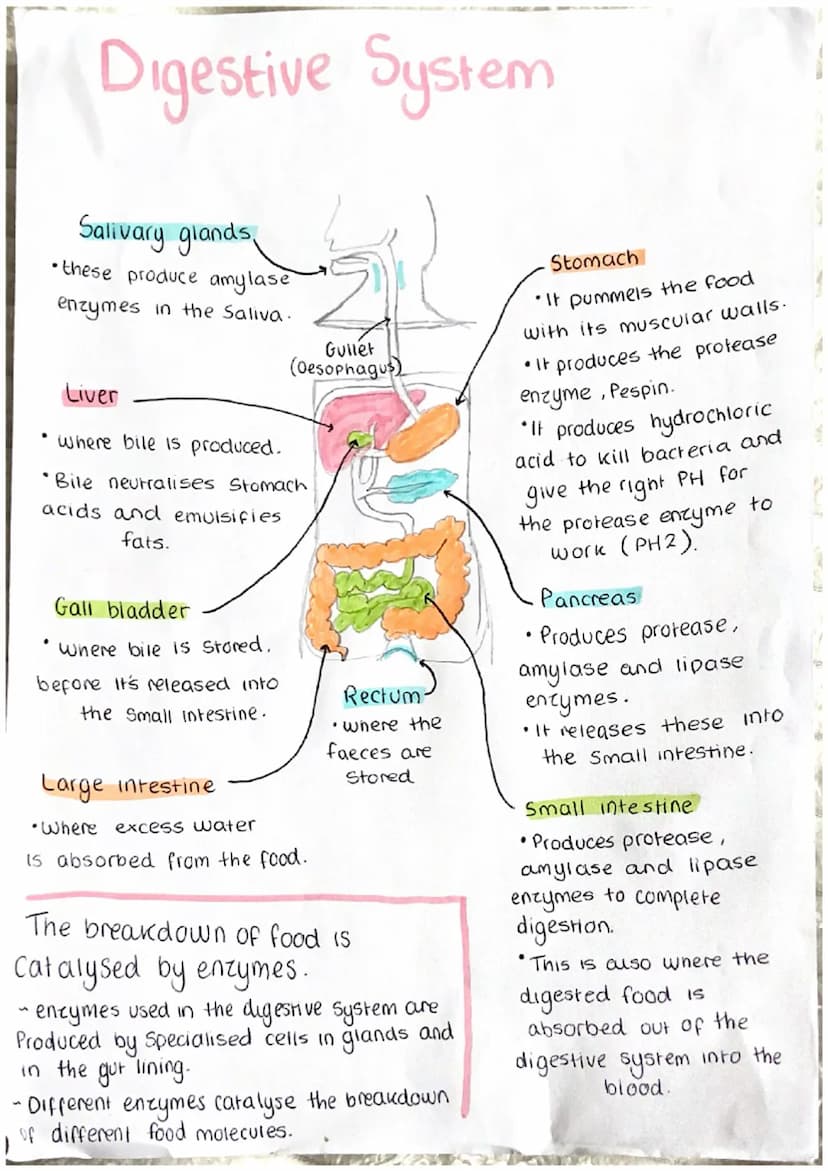 Digestive System
Salivary glands
• these produce amylase
enzymes in the Saliva.
Gullet
(Oesophagus)
Liver
• where bile is produced.
• Bile neutralises Stomach
acids and emulsifies
fats.
Gall bladder
• where bile is stored,
before it's released into
the Small intestine.
Rectum
• where the
faeces are
Stored
Large intestine
• Where excess water
is absorbed from the food.
Stomach
• It pummels the food
with its muscular walls.
• It produces the protease
enzyme, Pespin.
• It produces hydrochloric
acid to kill bacteria and
give the right PH for
the protease enzyme to
work (PH2).
Pancreas
• Produces protease,
amylase and lipase
enzymes.
• It releases these into
the Small intestine.
Small intestine
• Produces protease,
amylase and lipase
enzymes to complete
digestion.
• This is also where the
digested food is
absorbed out of the
digestive system into the
blood.
The breakdown of food is
Catalysed by enzymes.
- enzymes used in the digestive system are
Produced by Specialised cells in glands and
in the gut lining.
- Different enzymes catalyse the breakdown
of different food molecules.